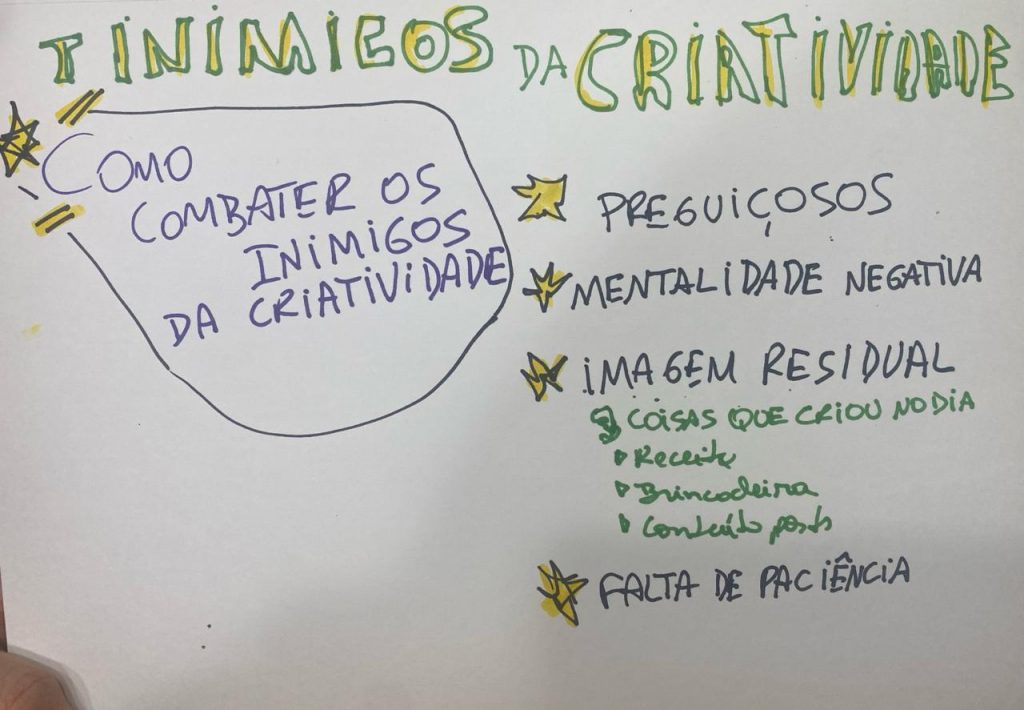 7 INIMIGOS DA CRIATIVIDADE
COMO
COMBATER OS
INIMIGOS
DA CRIATIVIDADE
PREGUIÇOSOS
MENTALIDADE NEGATIVA
IMAGEM RESIDUAL
COISAS QUE CRIOU NO DIA
Receita
Brincadeira
Conteúto posts
FALTA DE PACIÊNCIA